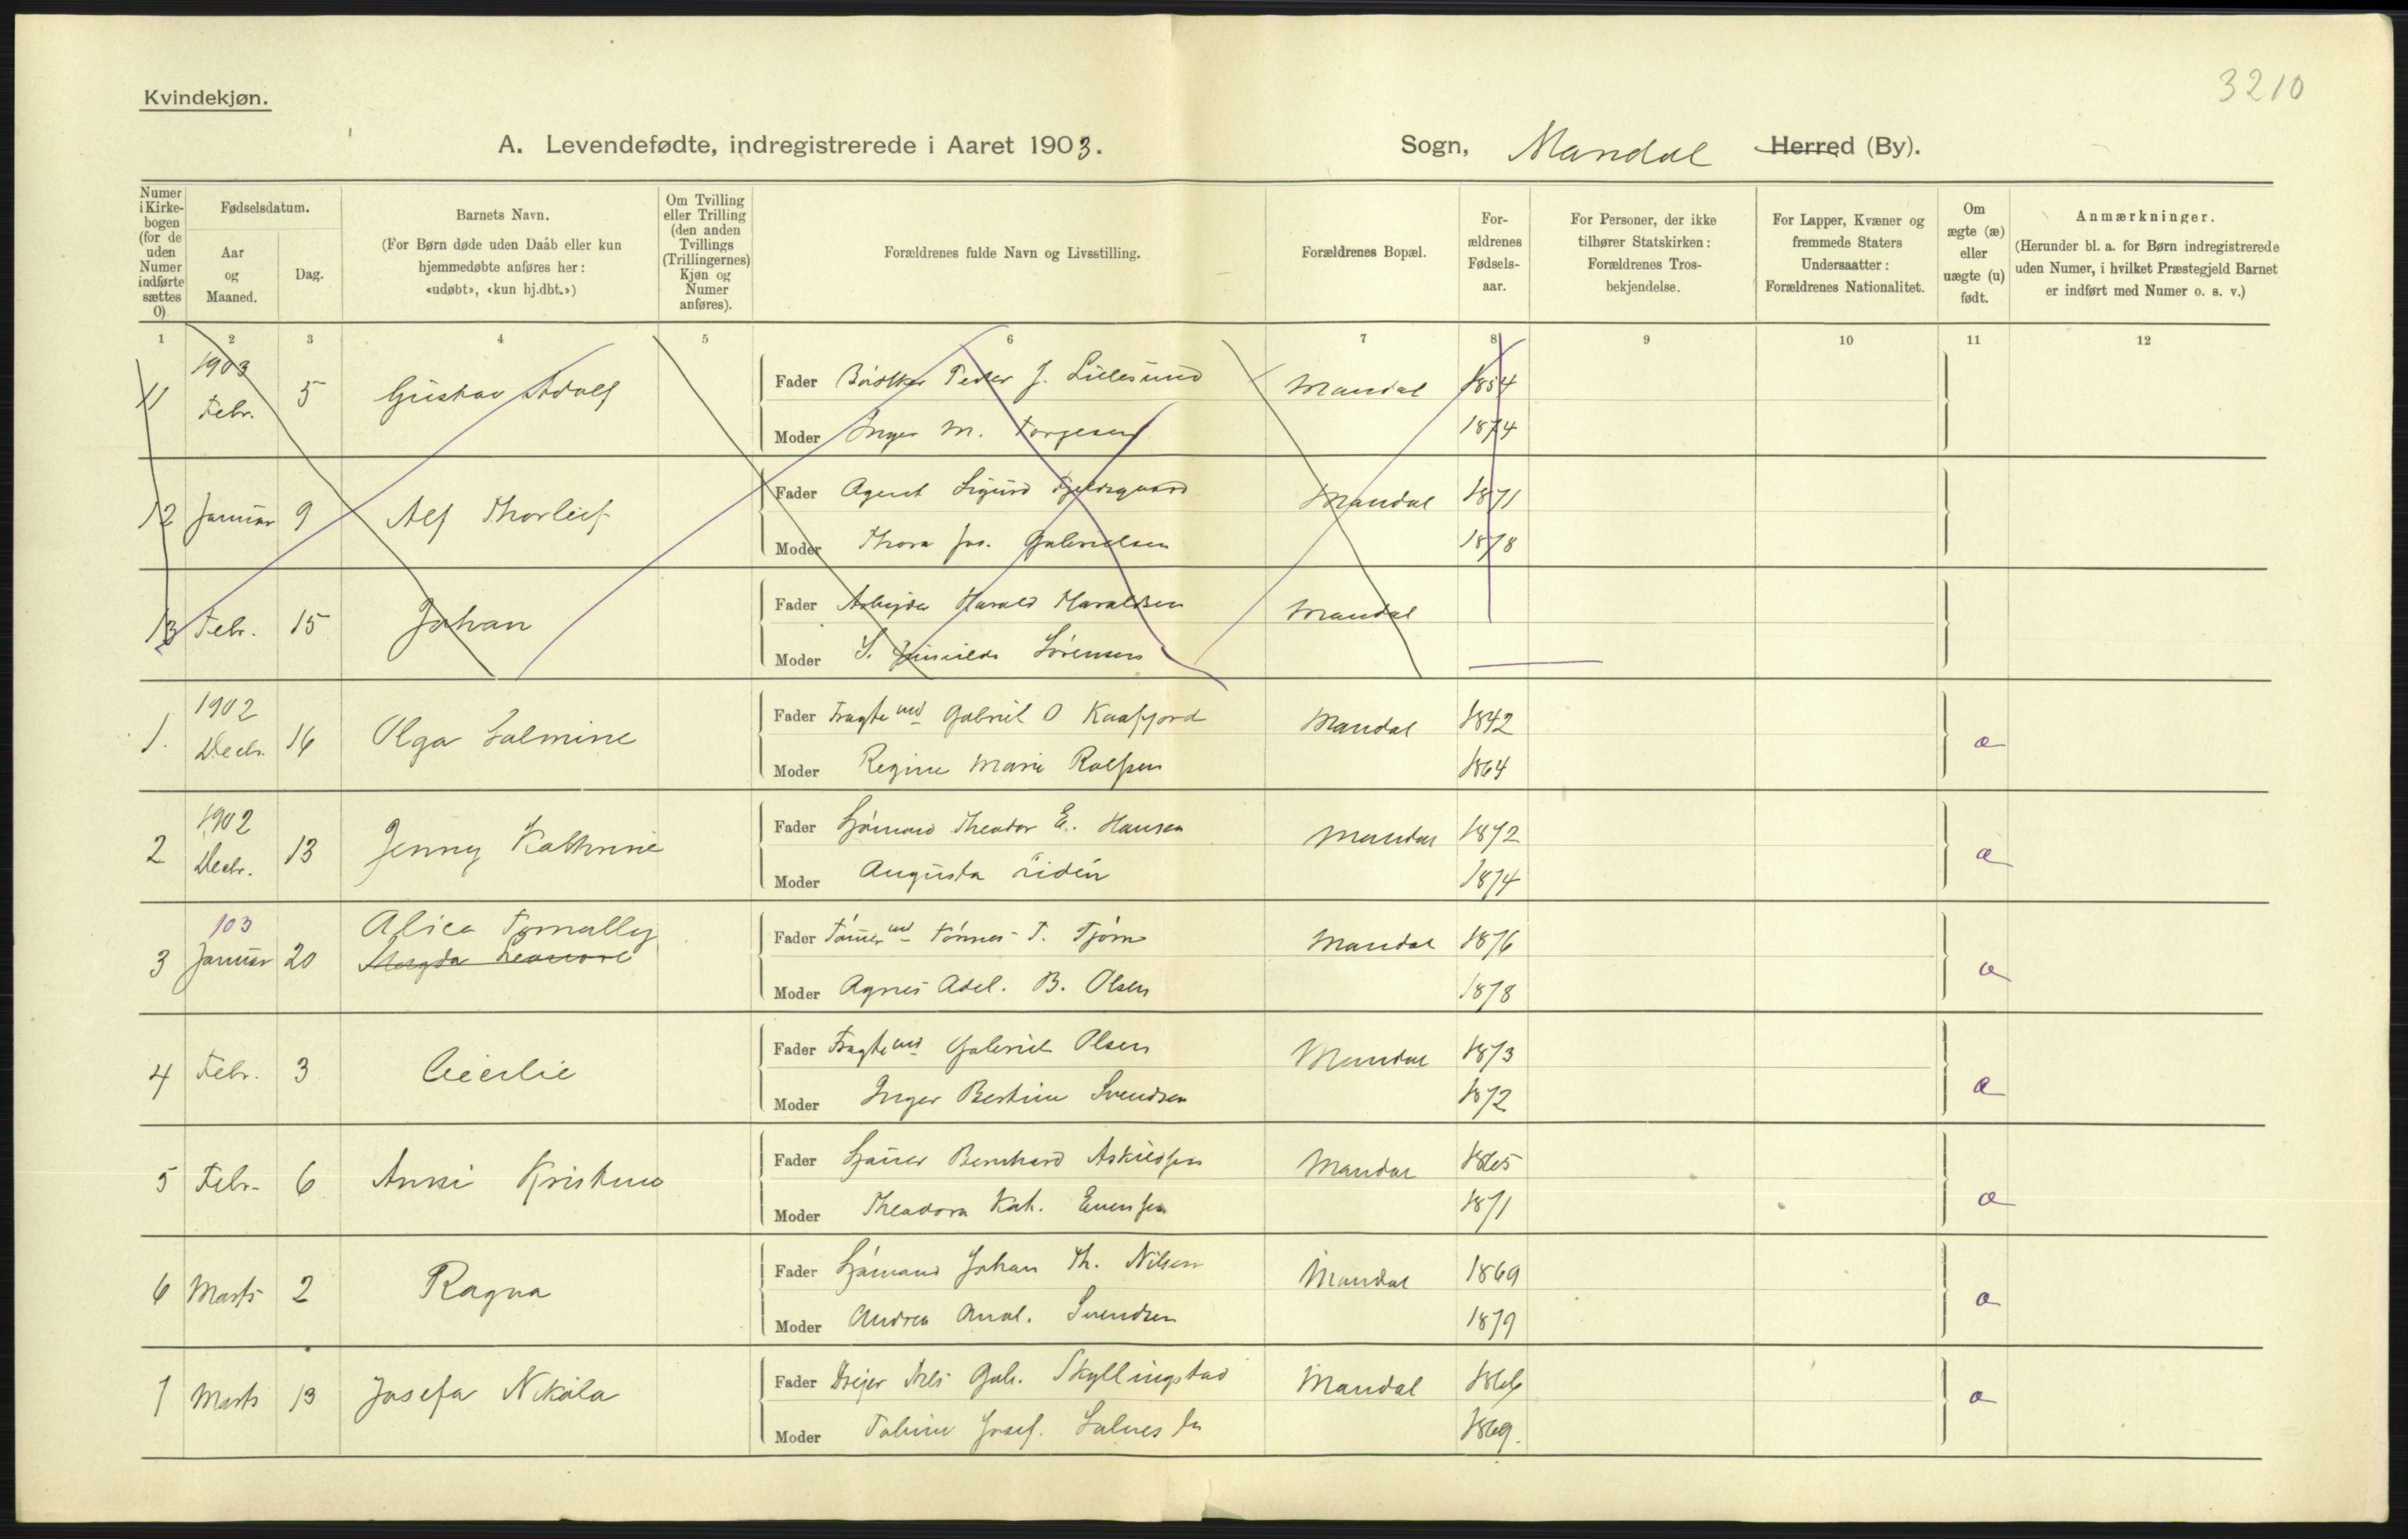 3210
Kvindekjøn.
A. Levendefødte, indregistrerede i Aaret 1903.
Sogn, Mandal Herred (By).
Numer i Kirkebogen (for de uden Numer indførte sættes 0)
Fødselsdatum.
Aar og Maaned.
Dag.
Barnets Navn.
(For Børn døde uden Daab eller kun hjemmedøbte anføres her: «udøbt», «kun hj.dbt.»)
Om Tvilling eller Trilling (den anden Tvillings (Trillingernes) Kjøn og Numer anføres).
Forældrenes fulde Navn og Livsstilling.
Forældrenes Bopæl.
Forældrenes Fødselsaar.
For Personer, der ikke tilhører Statskirken: Forældrenes Trosbekjendelse.
For Lapper, Kvæner og fremmede Staters Undersaatter: Forældrenes Nationalitet.
Om ægte (æ) eller uægte (u) født.
Anmærkninger.
(Herunder bl. a. for Børn indregistrerede uden Numer, i hvilket Præstegjeld Barnet er indført med Numer o. s. v.)
1 2 3 4 5 6 7 8 9 10 11 12
11 1903 Febr. 5 Gustav Adolf Fader Bødker Peder J. Lillesund Mandal 1854
Moder Inger M. Torgesen 1874
12 Januar 9 Alf Thorleif Fader Agent Sigurd Mandal 1871
Moder Thora Jos. Gabrielsen 1878
13 Febr. 15 Johan Fader Arbejder Harald Haraldsen Mandal
Moder S. Sørensen
1. 1902 Decbr. 16 Olga Salmine Fader Fragtemd Gabriel O Kaafjord Mandal 1842 æ
Moder Regine Marie Rolfsen 1864
2 1902 Decbr. 13 Jenny Kathrine Fader Sjømand Theodor E. Hansen Mandal 1872 æ
Moder Augusta 1874
3 103 Januar 20 Alica Tomally Magda Leonore Fader Tønnes T. Tjøm Mandal 1876 æ
Moder Agnes Adel. B. Olsen 1878
4 Febr. 3 Cecilie Fader Fragtemd Gabriel Olsen Mandal 1873 æ
Moder Inger Bertine Svendsen 1872
5 Febr. 6 Anni Kristine Fader Bernhard Askildsen Mandal 1865 æ
Moder Theodora Kat. Evensen 1871
6 Marts 2 Ragna Fader Sjømand Johan Th. Nilsen Mandal 1869 æ
Moder Andrea Amal. Svendsen 1879
7 Marts 13 Josefa Nikola Fader Drejer Nils Gab. Skyllingstad Mandal 1866 æ
Moder Josef. 1869.